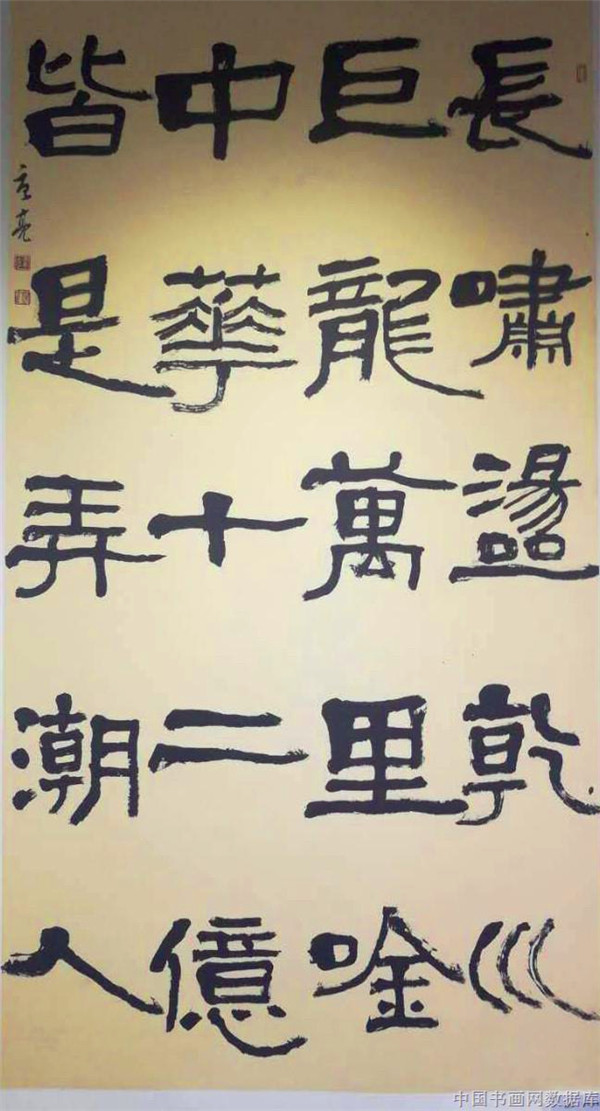 長嘯盪乾巛
巨龍萬里唫
中華十二億
皆是弄潮人
亮
中国书画网数据库